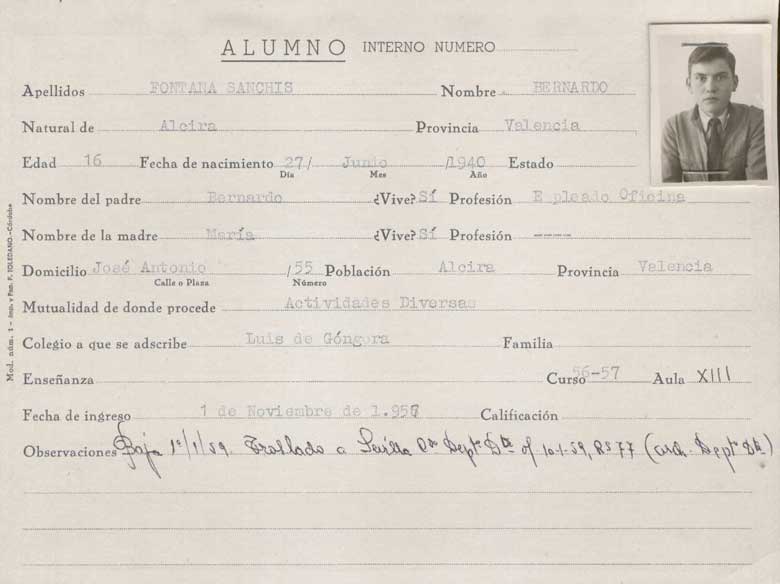 ALUMNO INTERNO NUMERO
Apellidos FONTANA SANCHIS Nombre BERNARDO
Natural de Alcira Provincia Valencia
Edad 16 Fecha de nacimiento 27/ Junio /1940 Estado
Día Mes Año
Nombre del padre Bernardo ¿Vive? Sí Profesión E pleado Oficina
Nombre de la madre María ¿Vive? Sí Profesión ----
Domicilio José Antonio /55 Población Alcira Provincia Valencia
Calle o Plaza Número
Mutualidad de donde procede Actividades Diversas
Colegio a que se adscribe Luis de Góngora Familia
Enseñanza Curso 56-57 Aula XIII
Fecha de ingreso 1 de Noviembre de 1.956 Calificación
Observaciones Baja 1º/1/59. Traslado a Sevilla of 10-1-59, RS 77 (arch. Deptº
Mod. núm. 1 - Imp. y Pap. F. TOLEDANO.-Córdoba